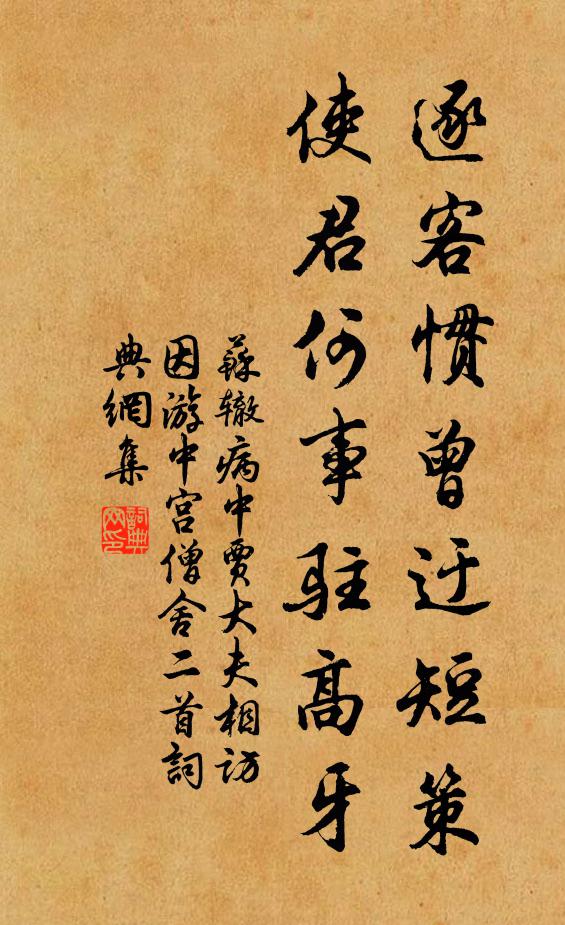 逐客慣曾迂短策
使君何事駐高牙
蘇辙病中賈大夫相訪
因游中宮僧舍二首詞
典網集
詞典網印